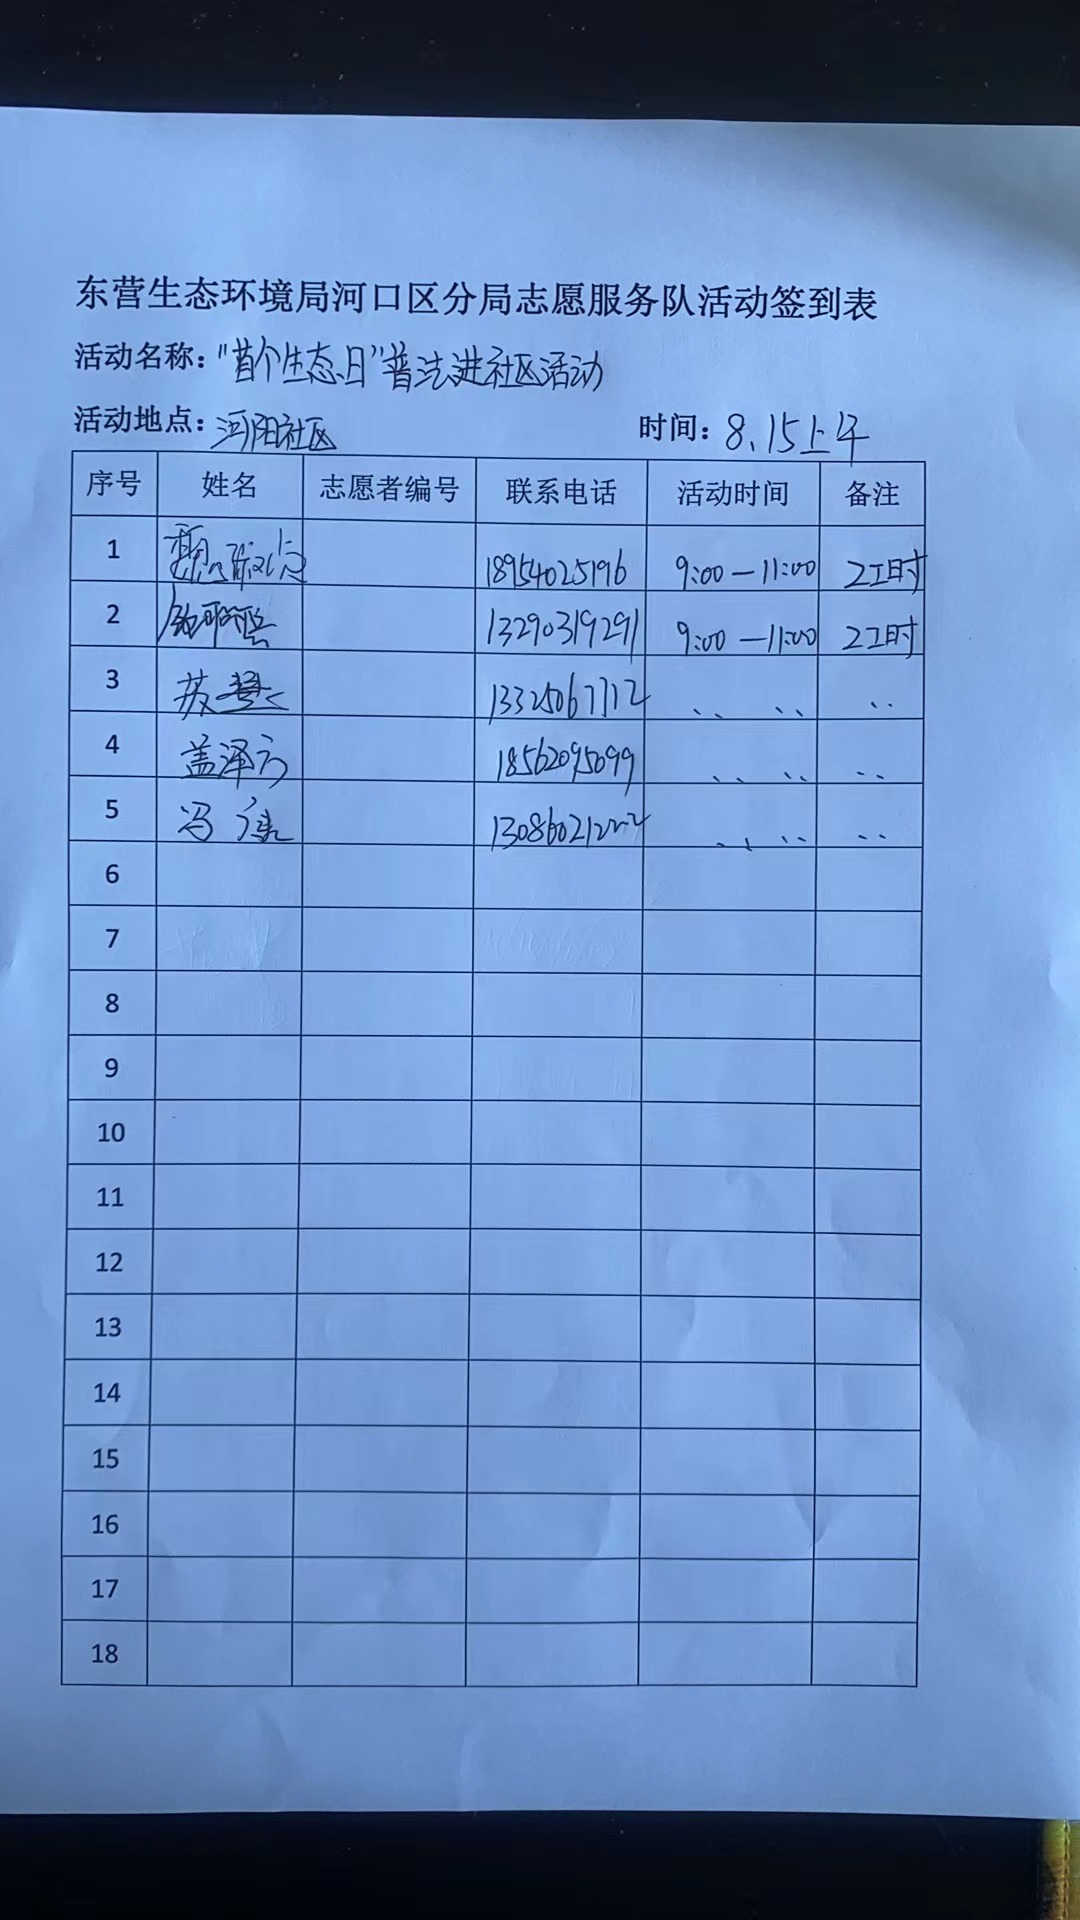 东营生态环境局河口区分局志愿服务队活动签到表
活动名称："首个生态日"普法进社区活动
活动地点：河阳社区 时间：8.15上午
序号 姓名 志愿者编号 联系电话 活动时间 备注
1 18954025196 9:00—11:00 2工时
2 13290319291 9:00—11:00 2工时
3 苏 13325067712 、、 、、 、、
4 盖泽方 18562095099 、、 、、 、、
5 冯 13086021222 、、 、、 、、
6
7
8
9
10
11
12
13
14
15
16
17
18